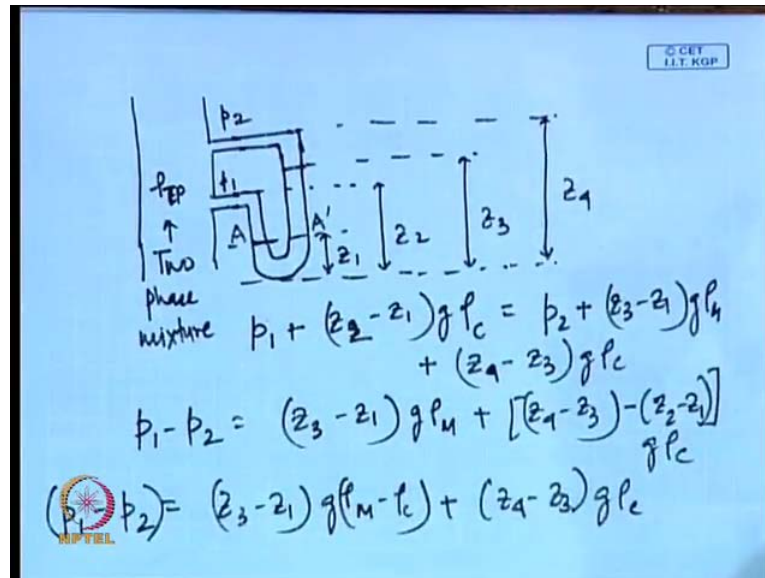 © CET
I.I.T. KGP
p2
z4
z3
z2
p1
A A'
z1
ρTP
↑
Two
phase
mixture
p1 + (z2 - z1) g ρc = p2 + (z3 - z1) g ρM
+ (z4 - z3) g ρc
p1 - p2 = (z3 - z1) g ρM + [(z4 - z3) - (z2 - z1)]
g ρc
(p1 - p2) = (z3 - z1) g (ρM - ρc) + (z4 - z3) g ρc
NPTEL